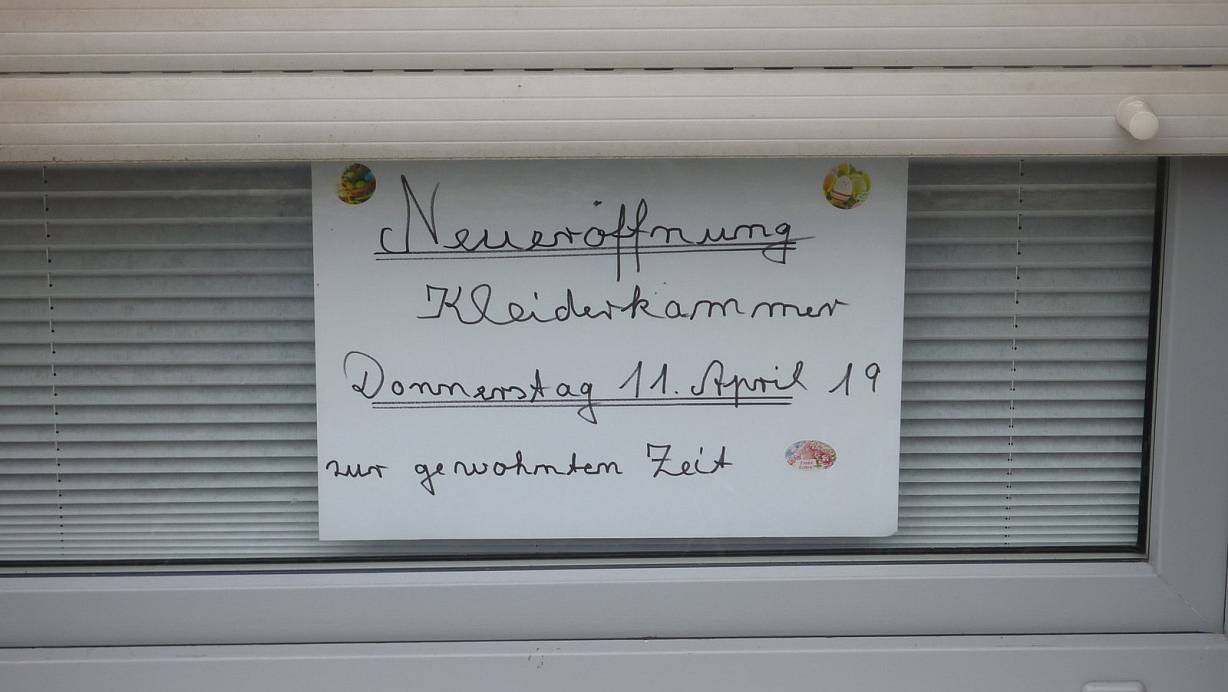 Neueröffnung
Kleiderkammer
Donnerstag 11. April 19
zur gewohnten Zeit